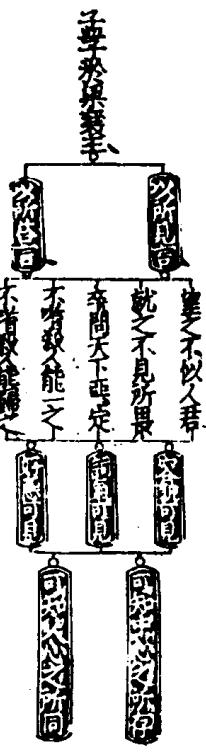 孟子於梁襄王
以所見言
以所答言
望之不似人君
就之不見所畏
卒問天下惡定
不嗜殺人能一之
不嗜殺人能
可見
可見
好惡可見
可知中心之所存
可知人心之所同